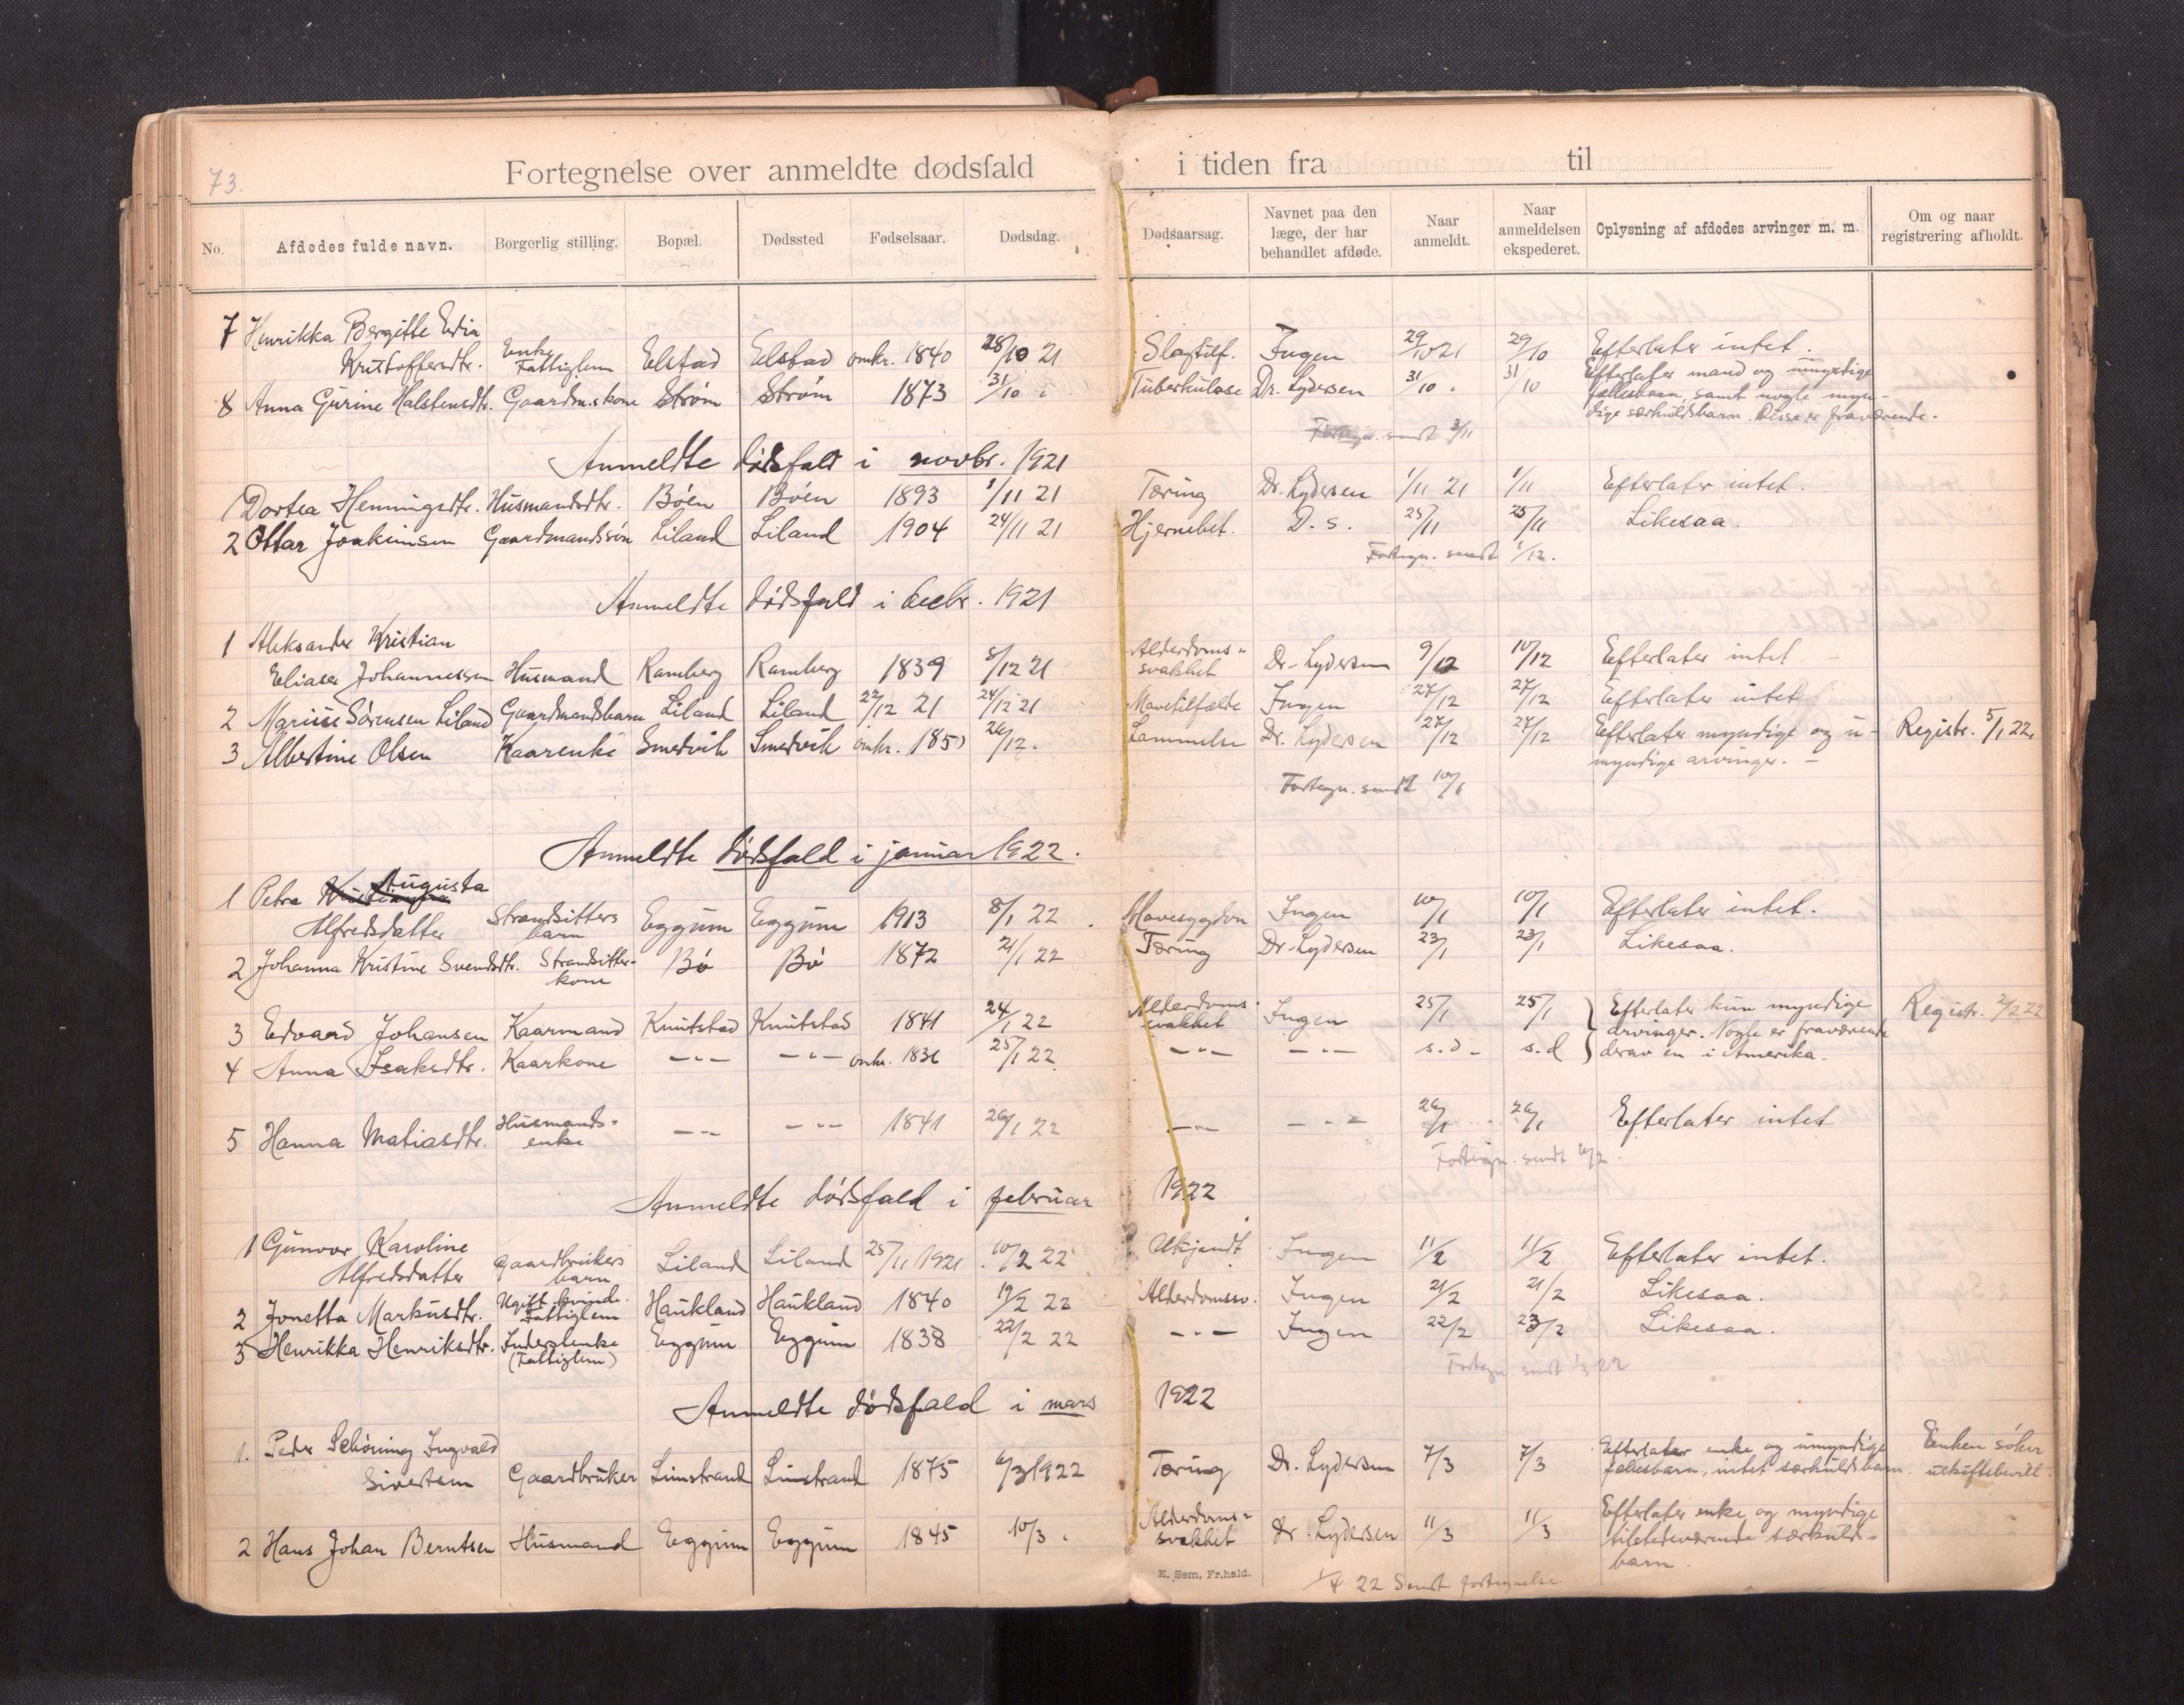 73.
Fortegnelse over anmeldte dødsfald i tiden fra til
No. Afdødes fulde navn. Borgerlig stilling. Bopæl. Dødssted Fødselsaar. Dødsdag. Dødsaarsag. Navnet paa den læge, der har behandlet afdøde. Naar anmeldt. Naar anmeldelsen ekspederet. Oplysning af afdødes arvinger m. m. Om og naar registrering afholdt.
7 Henrikka Bergitte Edia
Kristoffersdtr. Enke Fattiglem Elstad Elstad omkr. 1840 28/10 21 Slagtilf. Ingen 29/10 21 29/10 Efterlater intet.
8 Anna Gurine Halstensdtr. Gaardm.skone Strøm Strøm 1873 31/10 Tuberkulose Dr. Lydersen 31/10 31/10 Efterlater mand og umyndige
fællesbarn, samt nogle myn-
dige særkuldsbarn. Disse er fraværende.
Fortegn. sendt 3/11
Anmeldte dødsfald i novbr. 1921
1 Dortea Henningsdtr. Husmandsdtr. Bøen Bøen 1893 1/11 21 Tæring Dr. Lydersen 1/11 21 1/11 Efterlater intet.
2 Ottar Joakimsen Gaardmandssøn Liland Liland 1904 24/11 21 Hjernebet. D. s. 25/11 25/11 Likesaa.
Fortegn. sendt 1/12.
Anmeldte dødsfald i decbr. 1921
1 Aleksander Kristian
Elias Johannessen Husmand Ramberg Ramberg 1839 8/12 21 Alderdoms-
svakhet Dr. Lydersen 9/12 10/12 Efterlater intet
2 Marius Sørensen Liland Gaardmandsbarn Liland Liland 22/12 21 24/12 21 Mavetilfælde Ingen 27/12 27/12 Efterlater intet
3 Albertine Olsen Kaarenke Smedvik Smedvik omkr. 1850 26/12. Lammelse Dr. Lydersen 27/12 27/12 Efterlater myndige og u- Registr. 5/1 22.
myndige arvinger.
Fortegn. sendt 10/1
Anmeldte dødsfald i januar 1922.
1 Petra Augusta
Alfredsdatter Strandsitters barn Eggum Eggum 1913 8/1 22 Mavesygdom Ingen 10/1 10/1 Efterlater intet.
2 Johanna Kristine Svendsdtr. Strandsitter-
kone Bø Bø 1872 21/1 22 Tæring Dr. Lydersen 23/1 23/1 Likesaa.
3 Edvard Johansen Kaarmand Knutstad Knutstad 1841 24/1 22 Alderdoms-
svakhet Ingen 25/1 25/1 Efterlater kun myndige Registr. 2/2 22
arvinger. Nogle er fraværende
4 Anna Isaksdtr. Kaarkone -"- -"- omkr. 1836 25/1 22 -"- -"- s.d. s.d derav en i Amerika.
5 Hanna Matiasdtr. Husmands-
enke -"- -"- 1841 26/1 22 -"- -"- 26/1 26/1 Efterlater intet
Fortegn. sendt 6/2.
Anmeldte dødsfald i februar 1922
1 Gunvor Karoline
Alfredsdatter gaardbrukers barn Liland Liland 25/11 1921 10/2 22 Ukjendt Ingen 11/2 11/2 Efterlater intet.
2 Jonetta Markusdtr. Ugift kvinde. Fattiglem Haukland Haukland 1840 19/2 22 Alderdomssv. Ingen 21/2 21/2 Likesaa.
3 Henrikka Henriksdtr. Inderstenke (Fattiglem) Eggum Eggum 1838 22/2 22 -"- Ingen 22/2 23/2 Likesaa.
Fortegn. sendt 1/3 22
Anmeldte dødsfald i mars 1922
1. Peder Schøning Ingvald
Sivertsen Gaardbruker Limstrand Limstrand 1875 6/3 1922 Tæring Dr. Lydersen 7/3 7/3 Efterlater enke og umyndige Enken søker
fællesbarn, intet særkuldsbarn. utskiftebevill.
2 Hans Johan Berntsen Husmand Eggum Eggum 1845 10/3 Alderdoms-
svakhet Dr. Lydersen 11/3 11/3 Efterlater enke og myndige
tilstedeværende særkulds-
barn.
E. Sem, Fr.hald.
1/4 22 Sendt fortegnelse